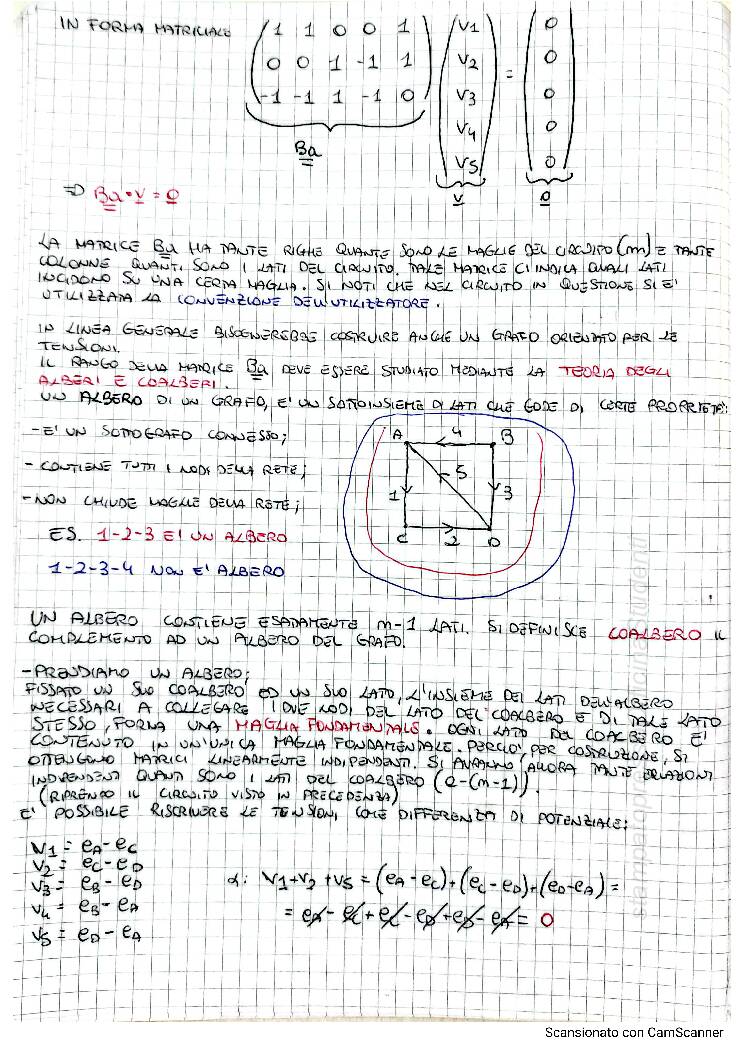 IN FORMA MATRICIALE
1 1 0 0 1
0 0 1 -1 1
-1 -1 1 -1 0
Ba
V1
V2
V3
V4
V5
v
=
0
0
0
0
0
0
⇒ Ba·v = 0
LA MATRICE Ba HA TANTE RIGHE QUANTE SONO LE MAGLIE DEL CIRCUITO (m) E TANTE
COLONNE QUANTI SONO I LATI DEL CIRCUITO. TALE MATRICE CI INDICA QUALI LATI
INCIDONO SU UNA CERTA MAGLIA. SI NOTI CHE NEL CIRCUITO IN QUESTIONE SI E'
UTILIZZATA LA CONVENZIONE DELL'UTILIZZATORE.
IN LINEA GENERALE BISOGNEREBBE COSTRUIRE ANCHE UN GRAFO ORIENTATO PER LE
TENSIONI.
IL RANGO DELLA MATRICE Ba DEVE ESSERE STUDIATO MEDIANTE LA TEORIA DEGLI
ALBERI E COALBERI.
UN ALBERO DI UN GRAFO, E' UN SOTTOINSIEME DI LATI CHE GODE DI CERTE PROPRIETE':
- E' UN SOTTOGRAFO CONNESSO;
- CONTIENE TUTTI I NODI DELLA RETE;
- NON CHIUDE MAGLIE DELLA RETE;
ES. 1-2-3 E' UN ALBERO
1-2-3-4 NON E' ALBERO
A 4 B
5
1 3
C 2 D
UN ALBERO CONTIENE ESATTAMENTE m-1 LATI. SI DEFINISCE COALBERO IL
COMPLEMENTO AD UN ALBERO DEL GRAFO.
- PRENDIAMO UN ALBERO;
FISSATO UN SUO COALBERO ED UN SUO LATO, L'INSIEME DEI LATI DELL'ALBERO
NECESSARI A COLLEGARE I DUE NODI DEL LATO DEL COALBERO E DI TALE LATO
STESSO, FORMA UNA MAGLIA FONDAMENTALE. OGNI LATO DEL COALBERO E'
CONTENUTO IN UN'UNICA MAGLIA FONDAMENTALE. PERCIO', PER COSTRUZIONE, SI
OTTENGONO MATRICI LINEARMENTE INDIPENDENTI. SI AVRANNO ALLORA TANTE EQUAZIONI
INDIPENDENTI QUANTI SONO I LATI DEL COALBERO (l-(m-1)).
(RIPRENDO IL CIRCUITO VISTO IN PRECEDENZA)
E' POSSIBILE RISCRIVERE LE TENSIONI, COME DIFFERENZA DI POTENZIALE:
V1 = eA - eC
V2 = eC - eD
V3 = eB - eD
V4 = eB - eA
V5 = eD - eA
α: V1+V2+V5 = (eA-eC)+(eC-eD)+(eD-eA) =
= eA - eC + eC - eD + eD - eA = 0
Scansionato con CamScanner